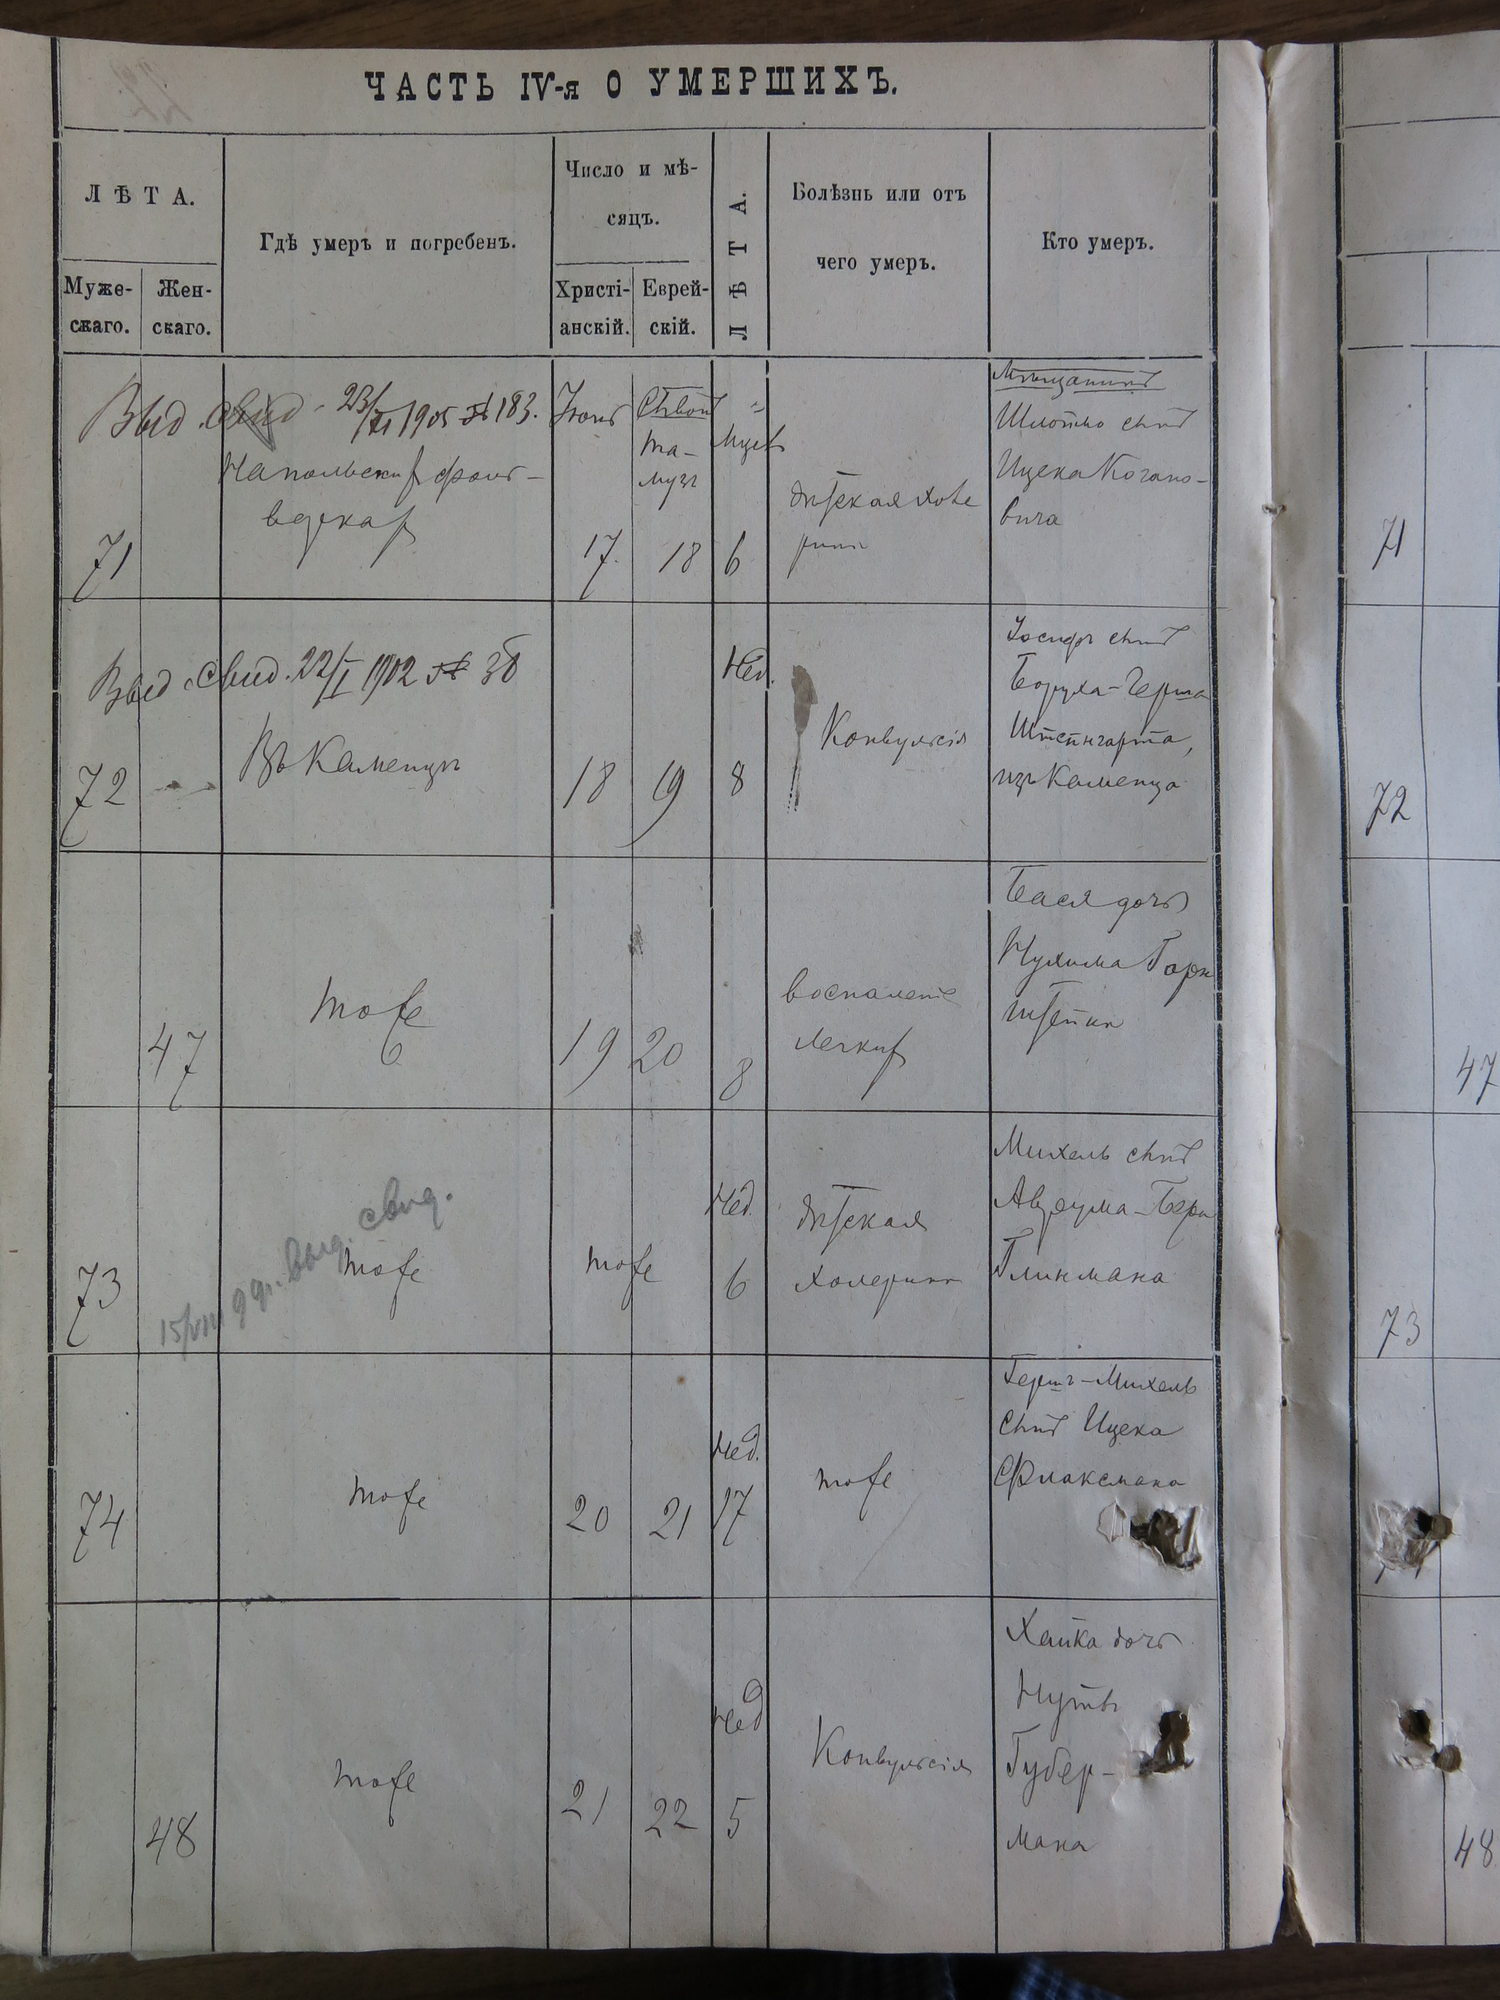 ЧАСТЬ IV-я О УМЕРШИХЪ.
ЛѢТА.
Муже-
скаго.
Жен-
скаго.
Гдѣ умеръ и погребенъ.
Число и мѣ-
сяцъ.
Христі-
анскій.
Еврей-
скій.
ЛѢТА.
Болѣзнь или отъ
чего умеръ.
Кто умеръ.
Выд. свид. 23/XI 1905 № 183.
71
17.
та-
музъ
18
6
дѣтская холе
рина
Мѣщанинъ
сынъ
Ицека Когано-
вича
71
Выд. Свид. 22/I 1902 № 38
72
Въ Каменцѣ
18
19
Нед.
8
Конвульсія
Іосифъ сынъ
Боруха-Герша
Штейнгарта,
изъ Каменца
72
47
тоже
19
20
8
воспаленіе
легкихъ
Бася дочь
Нухима Горн
штейна
47
73
15/VIII 9 выд. свид.
тоже
тоже
Нед.
6
дѣтская
холерина
Михель сынъ
Глинмана
73
74
тоже
20
21
Нед.
17
тоже
Гершъ-Михель
сынъ Ицека
Флаксмана
48
тоже
21
22
Нед
5
Конвульсія
Хайка дочь
Нуты
Губер-
мана
48